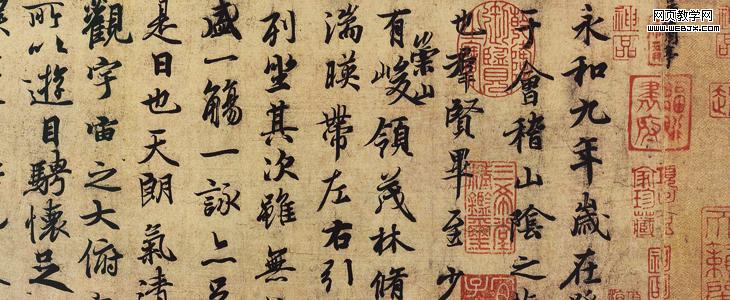 网页教学网
WWW.WEBJX.COM
神品
家珍藏
永和九年歲在
于會稽山陰之
也羣賢畢至少
有崇山峻領茂林脩
湍暎帶左右引
列坐其次雖無
盛一觴一詠亦足
是日也天朗氣清
觀宇宙之大俯
所以遊目騁懷足